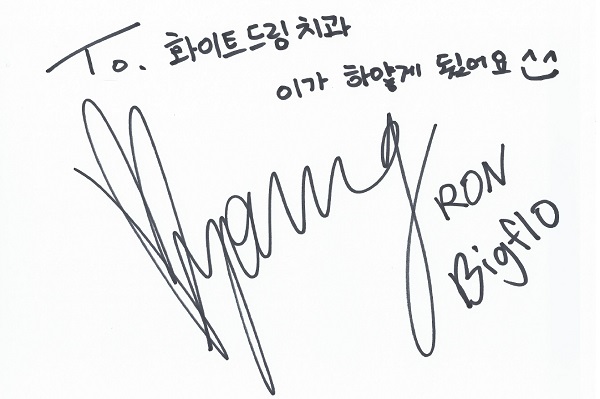 To. 화이트드림치과
이가 하얗게 됬어요 ^^
RON
Bigflo